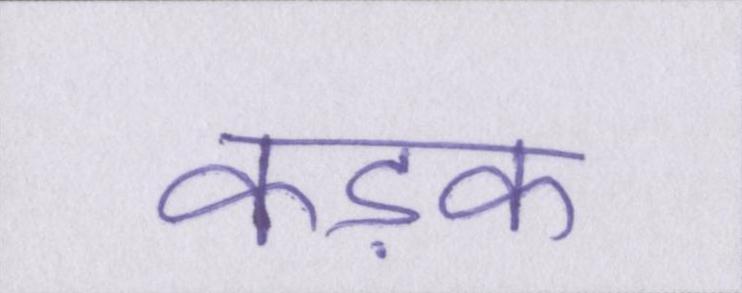 कड़क